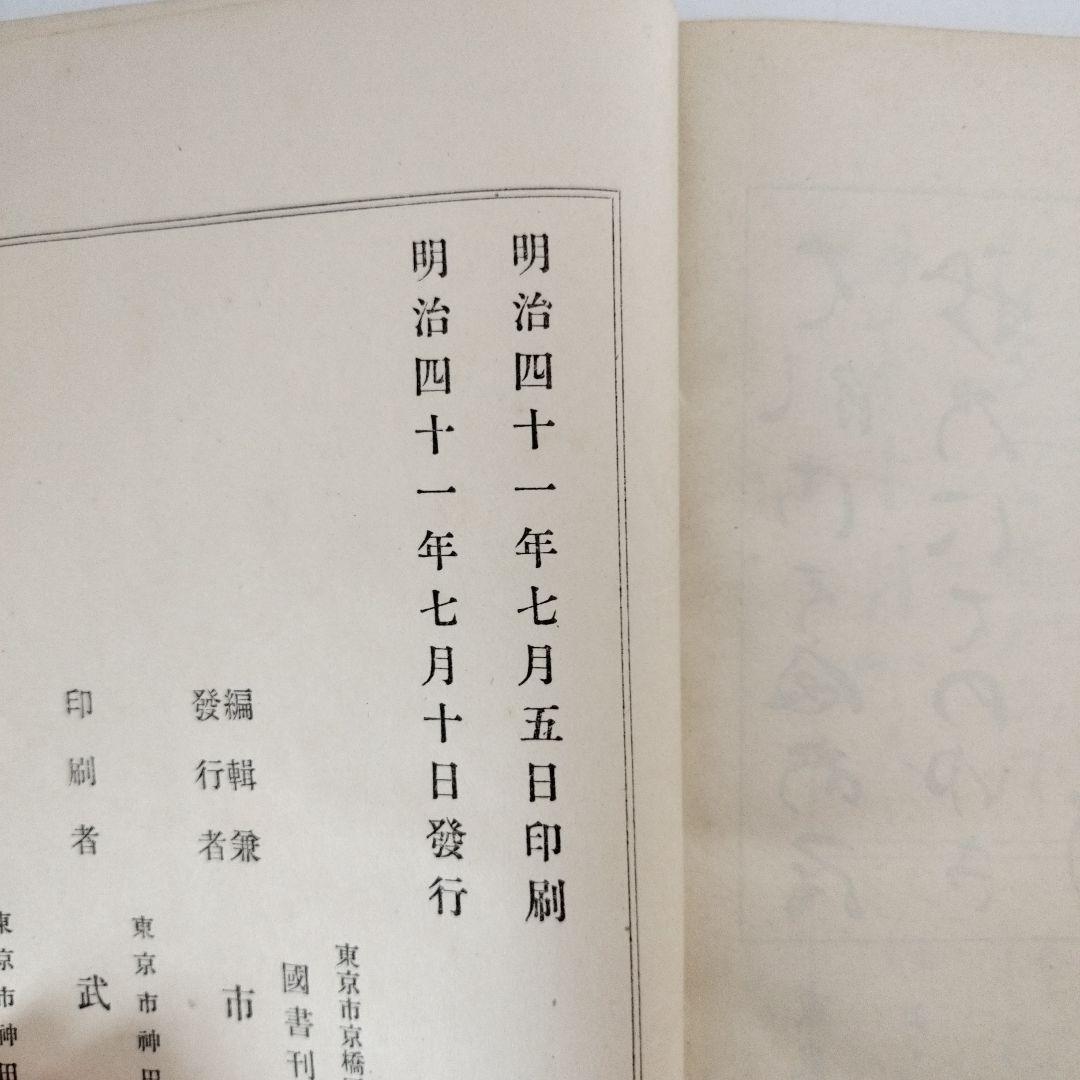 明治四十一年七月五日印刷
明治四十一年七月十日發行
東京市京橋
國書刊
編輯兼
發行者
市
東京市神田
印刷者
武
東京市神田